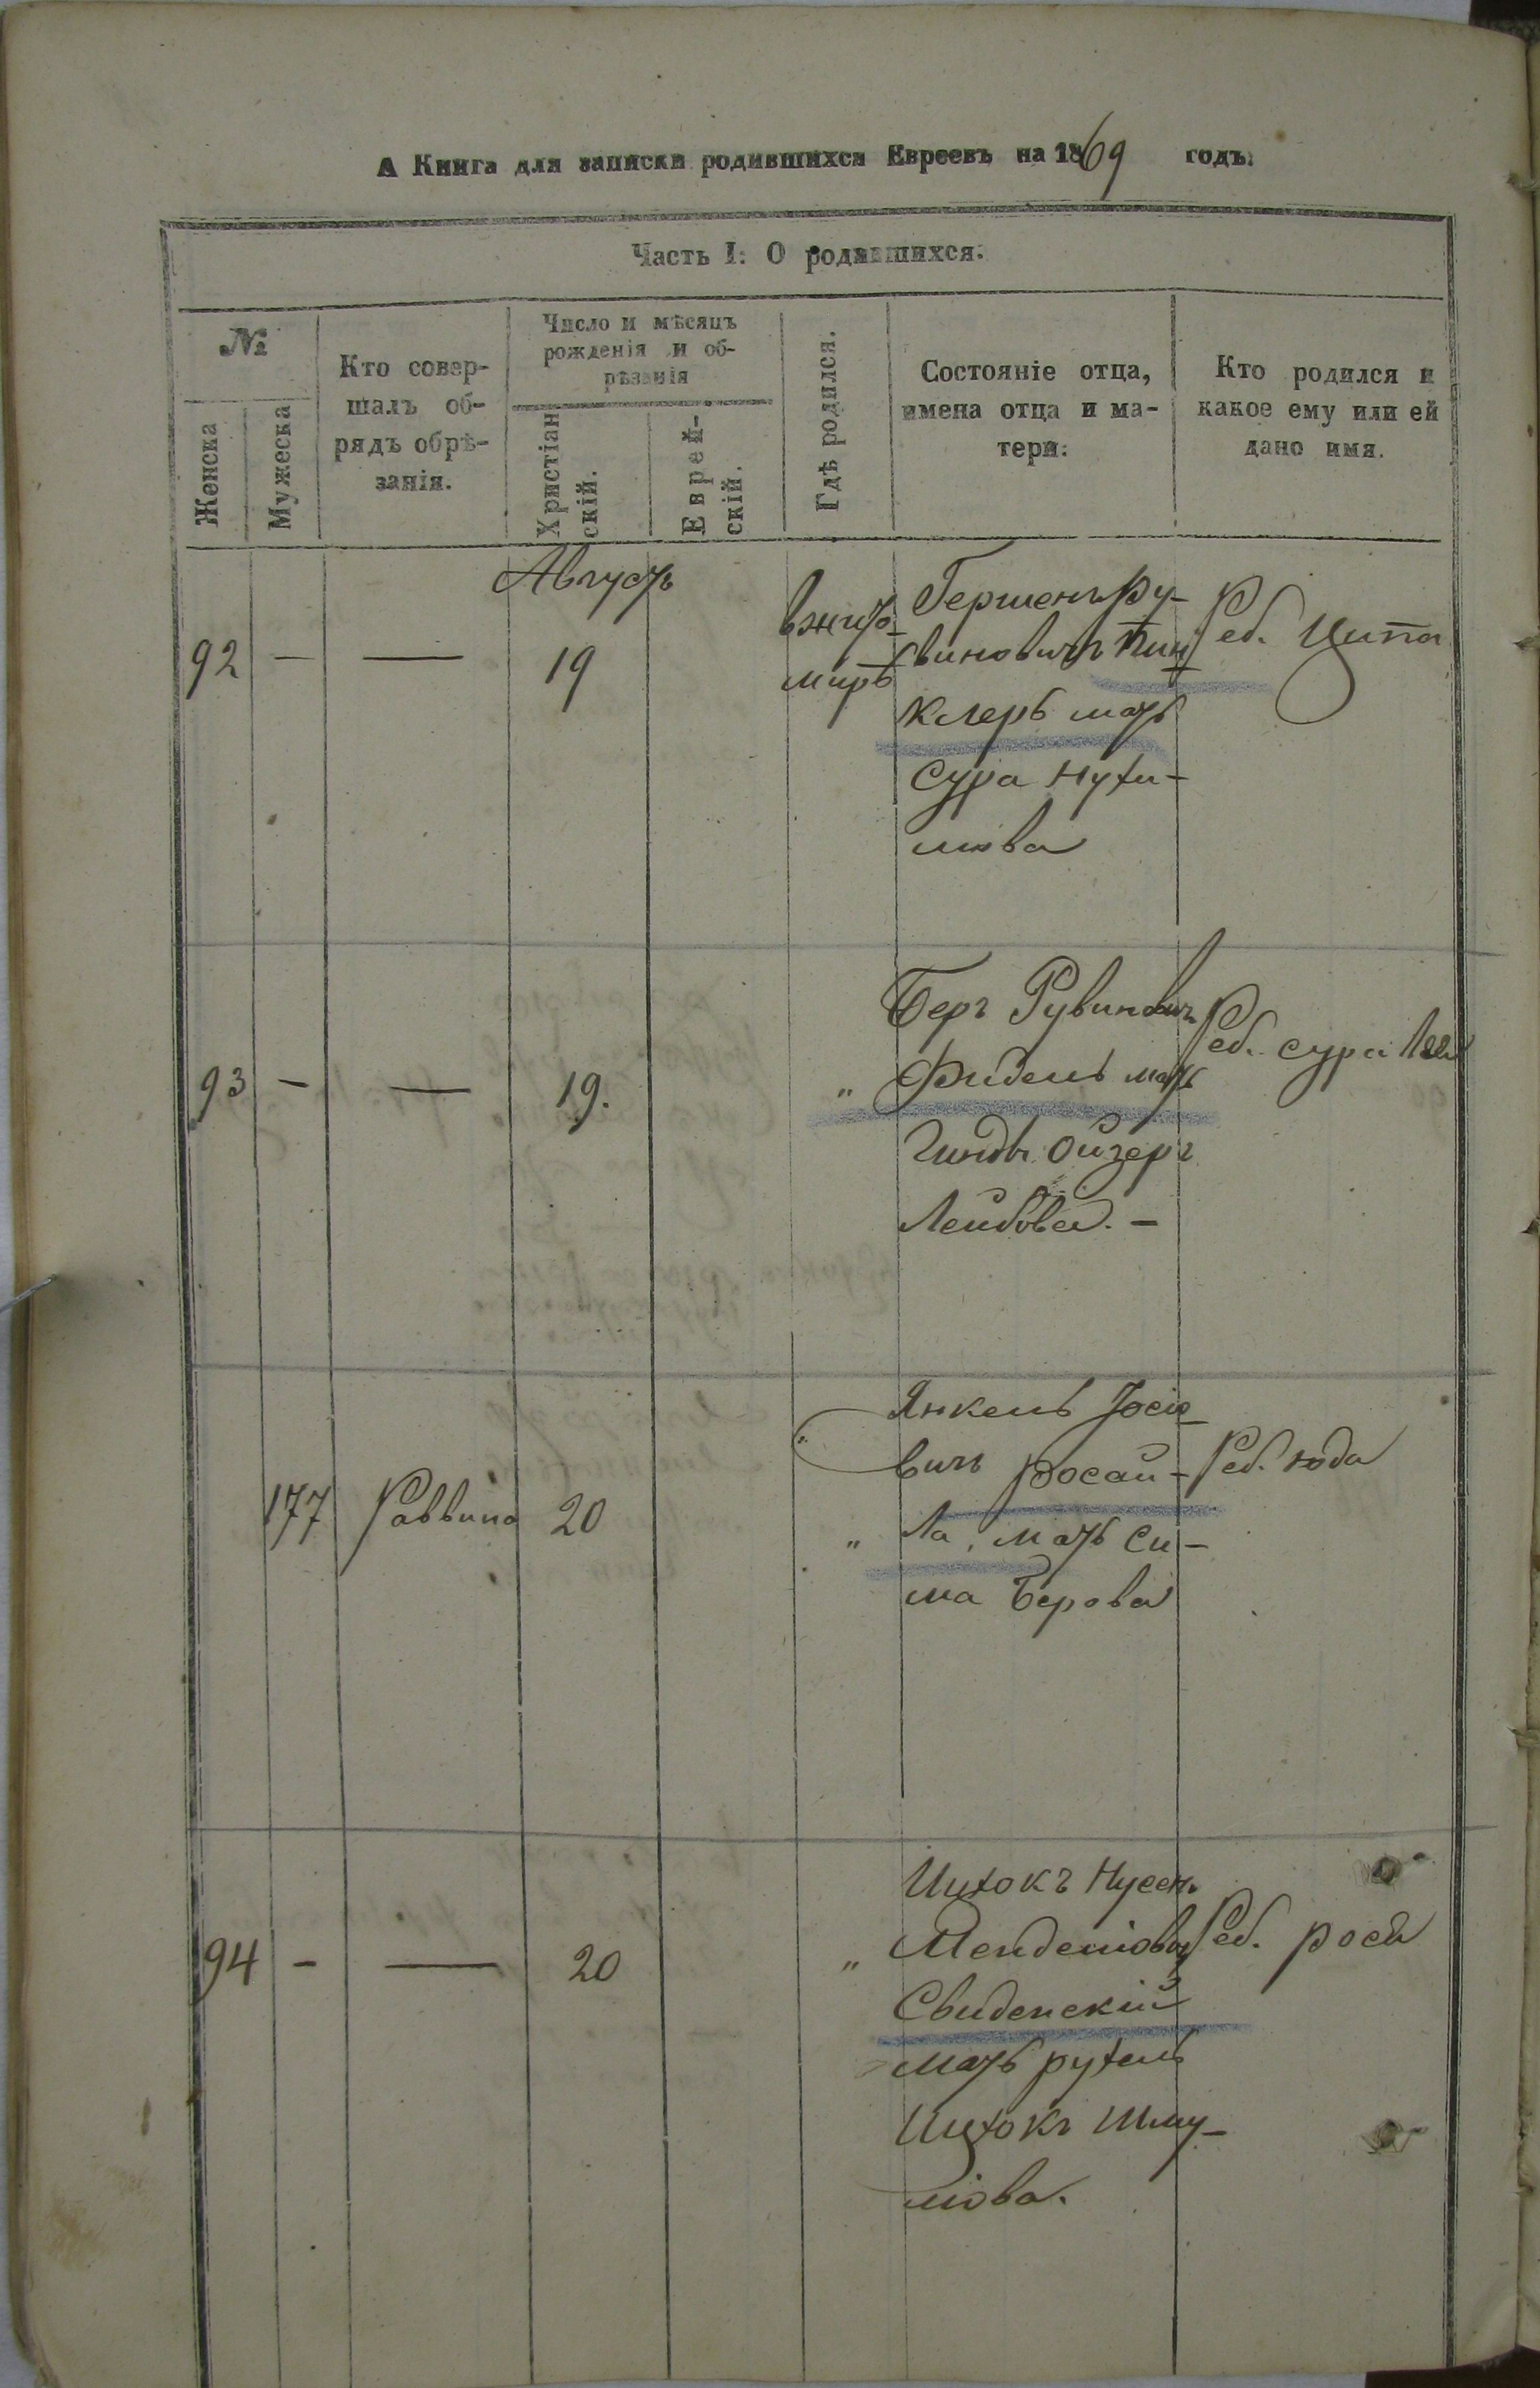 А Книга для записки родившихся Евреевъ на 1869 годъ.
Часть I: О родившихся.
№
Женска
Мужеска
Кто совер-
шалъ об-
рядъ обрѣ-
занія.
Число и мѣсяцъ
рожденія и об-
рѣзанія
Христіан
скій.
Еврей-
скій.
Гдѣ родился.
Состояніе отца,
имена отца и ма-
тери:
Кто родился и
какое ему или ей
дано имя.
Августъ
92 — — 19
в жито-
миръ
Гершенъ Ру-
виновичъ Пин
клеръ мать
Сура Нухи-
мова
Реб. Ципа
93 — — 19.
"
Беръ Рувинович
Фидель мать
Гинда Ойзеръ
Лейбова. —
Реб. сура Лея
177 Раввинъ 20
"
Янкель Іосіо
вичъ Росай-
ла, мать Си-
ма Берова
Реб. юда
94 — — 20
"
Ицхокъ Нусенъ
Менделіовъ
Свиденскій
мать рухель
Ицхокъ Шму-
ліова.
Реб. роса